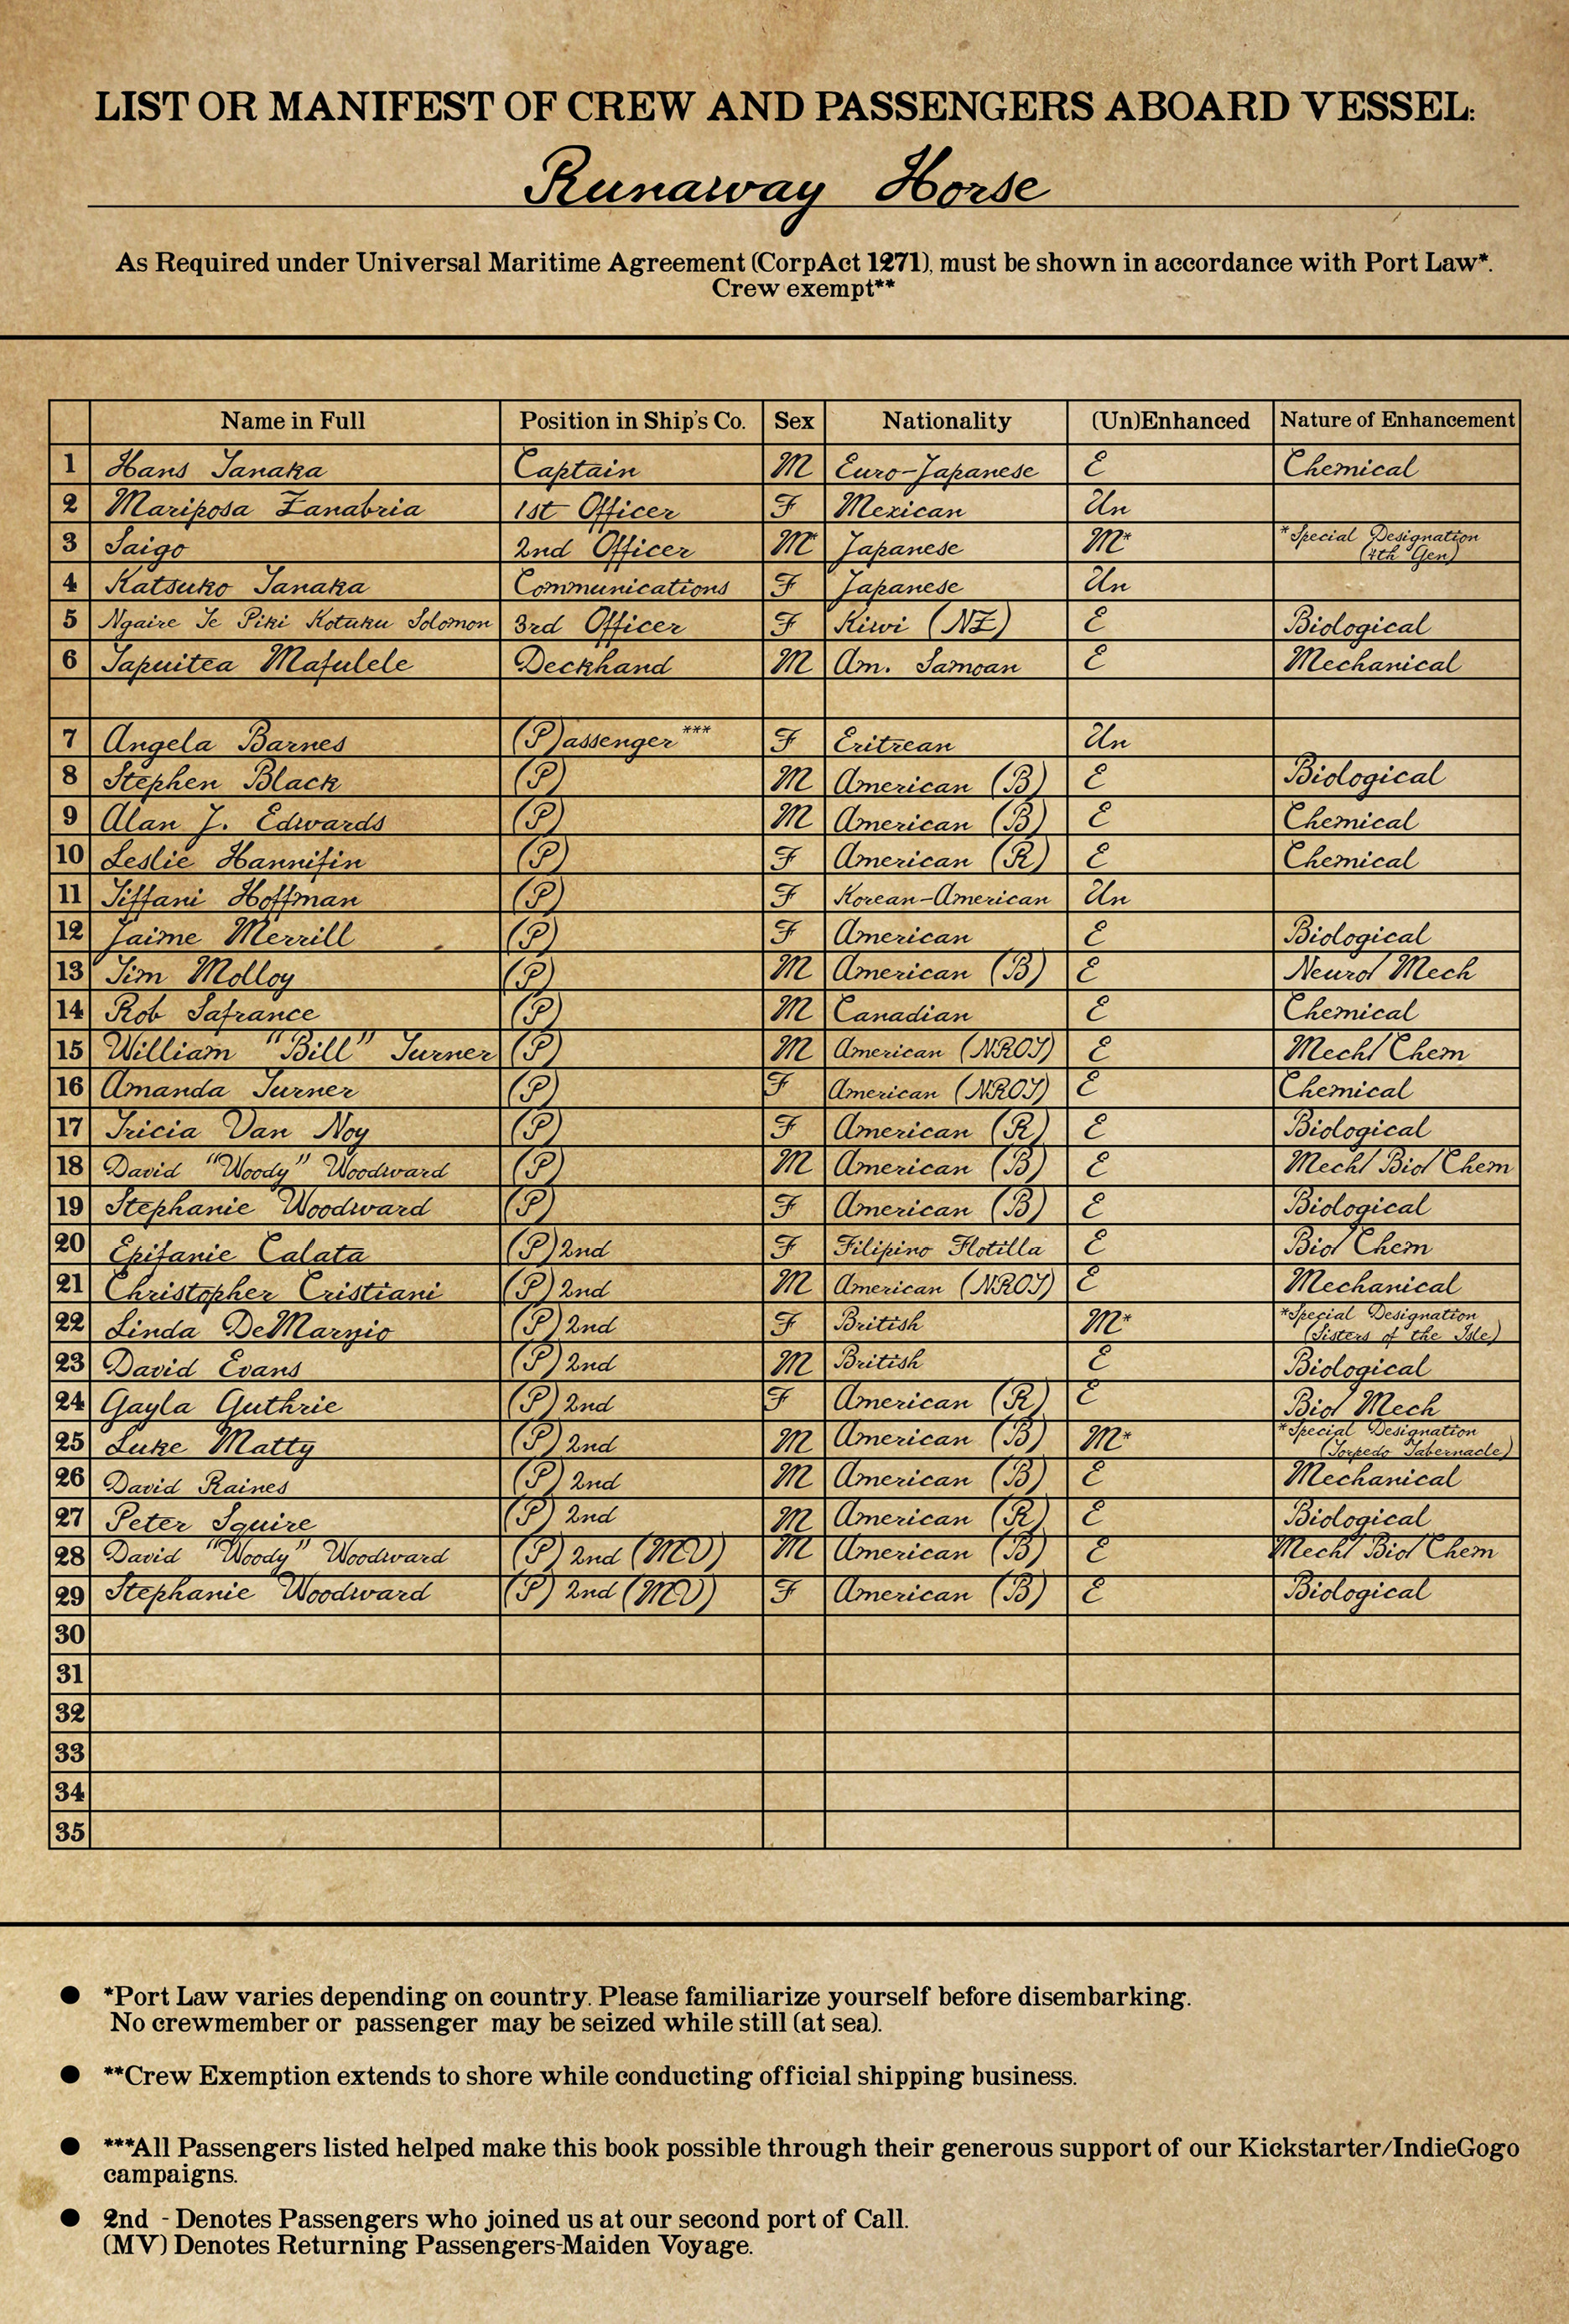 LIST OR MANIFEST OF CREW AND PASSENGERS ABOARD VESSEL:
Runaway Horse
As Required under Universal Maritime Agreement (CorpAct 1271), must be shown in accordance with Port Law*.
Crew exempt**
Name in Full Position in Ship's Co. Sex Nationality (Un)Enhanced Nature of Enhancement
1 Hans Tanaka Captain M Euro-Japanese E Chemical
2 Mariposa Zanabria 1st Officer F Mexican Un
3 Saigo 2nd Officer M* Japanese M* *Special Designation
(4th Gen)
4 Katsuko Tanaka Communications F Japanese Un
5 Ngaire Te Piki Kotuku Solomon 3rd Officer F Kiwi (NZ) E Biological
6 Tapuitea Mafulele Deckhand M Am. Samoan E Mechanical
7 Angela Barnes (P)assenger*** F Eritrean Un
8 Stephen Black (P) M American (B) E Biological
9 Alan J. Edwards (P) M American (B) E Chemical
10 Leslie Hannifin (P) F American (R) E Chemical
11 Tiffani Hoffman (P) F Korean-American Un
12 Jaime Merrill (P) F American E Biological
13 Tim Molloy (P) M American (B) E Neuro/Mech
14 Rob Lafrance (P) M Canadian E Chemical
15 William "Bill" Turner (P) M American (NROT) E Mech/Chem
16 Amanda Turner (P) F American (NROT) E Chemical
17 Tricia Van Noy (P) F American (R) E Biological
18 David "Woody" Woodward (P) M American (B) E Mech/Bio/Chem
19 Stephanie Woodward (P) F American (B) E Biological
20 Epifanie Calata (P) 2nd F Filipino Flotilla E Bio/Chem
21 Christopher Cristiani (P) 2nd M American (NROT) E Mechanical
22 Linda DeMarzio (P) 2nd F British M* *Special Designation
(Sisters of the Isle)
23 David Evans (P) 2nd M British E Biological
24 Gayla Guthrie (P) 2nd F American (R) E Bio/Mech
25 Luke Matty (P) 2nd M American (B) M* *Special Designation
(Torpedo Tabernacle)
26 David Raines (P) 2nd M American (B) E Mechanical
27 Peter Squire (P) 2nd M American (R) E Biological
28 David "Woody" Woodward (P) 2nd (MV) M American (B) E Mech/Bio/Chem
29 Stephanie Woodward (P) 2nd (MV) F American (B) E Biological
30
31
32
33
34
35
● *Port Law varies depending on country. Please familiarize yourself before disembarking.
No crewmember or passenger may be seized while still (at sea).
● **Crew Exemption extends to shore while conducting official shipping business.
● ***All Passengers listed helped make this book possible through their generous support of our Kickstarter/IndieGogo
campaigns.
● 2nd - Denotes Passengers who joined us at our second port of Call.
(MV) Denotes Returning Passengers-Maiden Voyage.